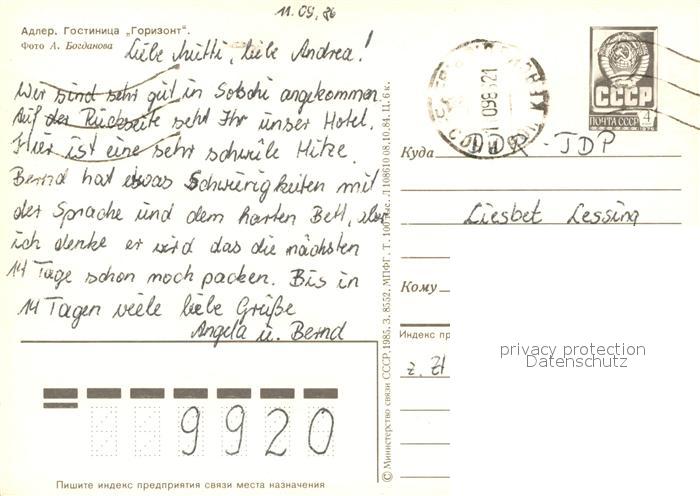 11.09.86
Адлер. Гостиница „Горизонт“.
Фото А. Богданова
Liebe Mutti, liebe Andrea!
Wir sind sehr gut in Sotschi angekommen.
Auf der Rückseite seht Ihr unser Hotel.
Hier ist eine sehr schwüle Hitze.
Bernd hat etwas Schwierigkeiten mit
der Sprache und dem harten Bett, aber
ich denke er wird das die nächsten
14 Tage schon noch packen. Bis in
14 Tagen viele liebe Grüße
Angela u. Bernd
9920
Пишите индекс предприятия связи места назначения
© Министерство связи СССР, 1985. З. 8552. МПФГ. Т. 100 тыс. Л 108610 08.10.84. Ц. 6 к.
СССР
ПОЧТА СССР 4
Куда
DDR - JDP
Liesbet Lessing
Кому
Индекс пр
z. Zt
privacy protection
Datenschutz